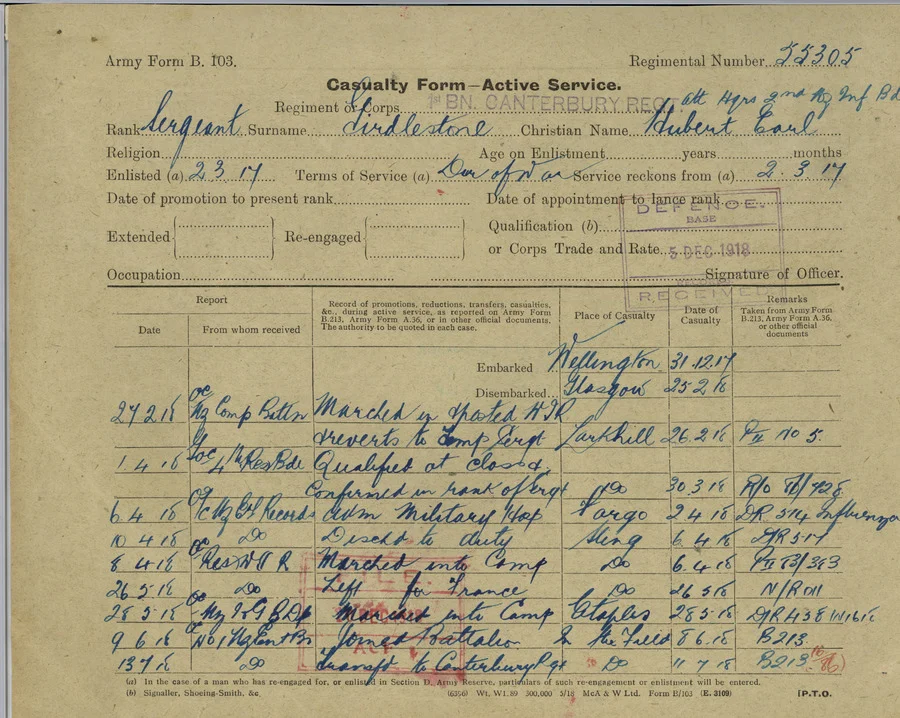 Army Form B. 103.
Regimental Number 55305
Casualty Form—Active Service.
Regiment or Corps 1st BN. CANTERBURY REGT att Hqrs 2nd NZ Inf Bd
Rank Sergeant Surname Girdlestone Christian Name Hubert Earl
Religion Age on Enlistment years months
Enlisted (a) 2 3 17 Terms of Service (a) Dur of War Service reckons from (a) 2. 3. 17
Date of promotion to present rank Date of appointment to lance rank
DEFENCE.
BASE
5 DEC 1918
RECEIVED
Extended Re-engaged Qualification (b)
or Corps Trade and Rate
Occupation Signature of Officer.
Report
Date
From whom received
Record of promotions, reductions, transfers, casualties,
&c., during active service, as reported on Army Form
B.213, Army Form A.36, or in other official documents.
The authority to be quoted in each case.
Place of Casualty
Date of
Casualty
Remarks
Taken from Army Form
B.213, Army Form A.36,
or other official
documents
Embarked Wellington 31.12.17
Disembarked Glasgow 25 2 18
27 2 18 OC NZ Comp Battn Marched in & posted
& reverts to Temp Sergt Larkhill 26.2.18 PII No 5.
1 4 18 4th Res Bde Qualified at class &
Confirmed in rank of Sergt Do 30 3 18
6 4 18 Records Adm Military Hos Fargo 2 4 18 DR 514 Influenza
10 4 18 Do Discd to duty Sling 6 4 18 D/R 517
8 4 18 OC Res Marched into Camp Do 6. 4 18
26 5 18 Do Left for France Do 26 5 18 N/R 011
28 5 18 OC NZ Marched into Camp Etaples 28 5 18
9 6 18 No 1 NZ Ent Bn Joined Battalion In the Field 8 6 18 B213
13 7 18 Do Transfd to Canterbury Rgt Do 11 7 18 B213
(a) In the case of a man who has re-engaged for, or enlisted in Section D, Army Reserve, particulars of such re-engagement or enlistment will be entered.
(b) Signaller, Shoeing-Smith, &c. (6356) Wt. W1.89 300,000 5/18 McA & W Ltd. Form B/103 (E. 3109) [P.T.O.